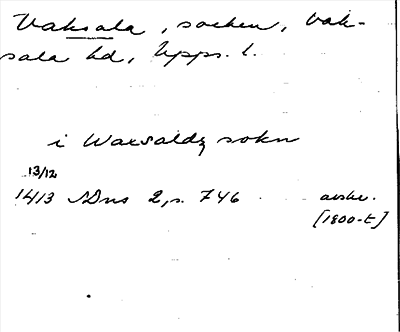 Vaksala, socken, Vak-
sala hd, Upps. l.
i Waxsaldhæ sokn
13/12
1413 SDns 2, s. 746 avskr.
[1800-t]